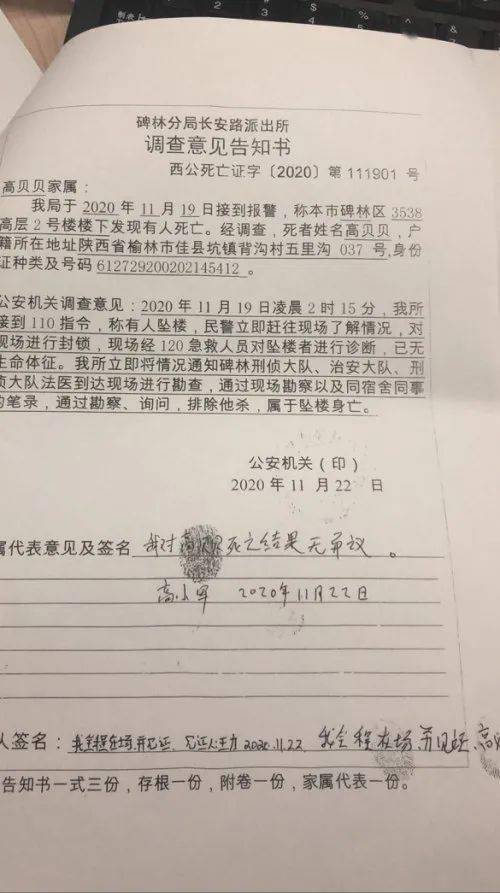 碑林分局长安路派出所
调查意见告知书
西公死亡证字〔2020〕第 111901 号
高贝贝家属：
我局于 2020 年 11 月 19 日接到报警，称本市碑林区 3538
高层 2 号楼楼下发现有人死亡。经调查，死者姓名高贝贝，户
籍所在地址陕西省榆林市佳县坑镇背沟村五里沟 037 号,身份
证种类及号码 612729200202145412 。
公安机关调查意见：2020 年 11 月 19 日凌晨 2 时 15 分，我所
接到 110 指令，称有人坠楼，民警立即赶往现场了解情况，对
现场进行封锁，现场经 120 急救人员对坠楼者进行诊断，已无
生命体征。我所立即将情况通知碑林刑侦大队、治安大队、刑
侦大队法医到达现场进行勘查，通过现场勘察以及同宿舍同事
的笔录，通过勘察、询问，排除他杀，属于坠楼身亡。
公安机关（印）
2020 年 11 月 22 日
属代表意见及签名 我对高贝贝死亡结果无异议。
高小军 2020年11月22日
人签名：我全程在场并见证 见证人王力 2020.11.22 我全程在场并见证
告知书一式三份，存根一份，附卷一份，家属代表一份。